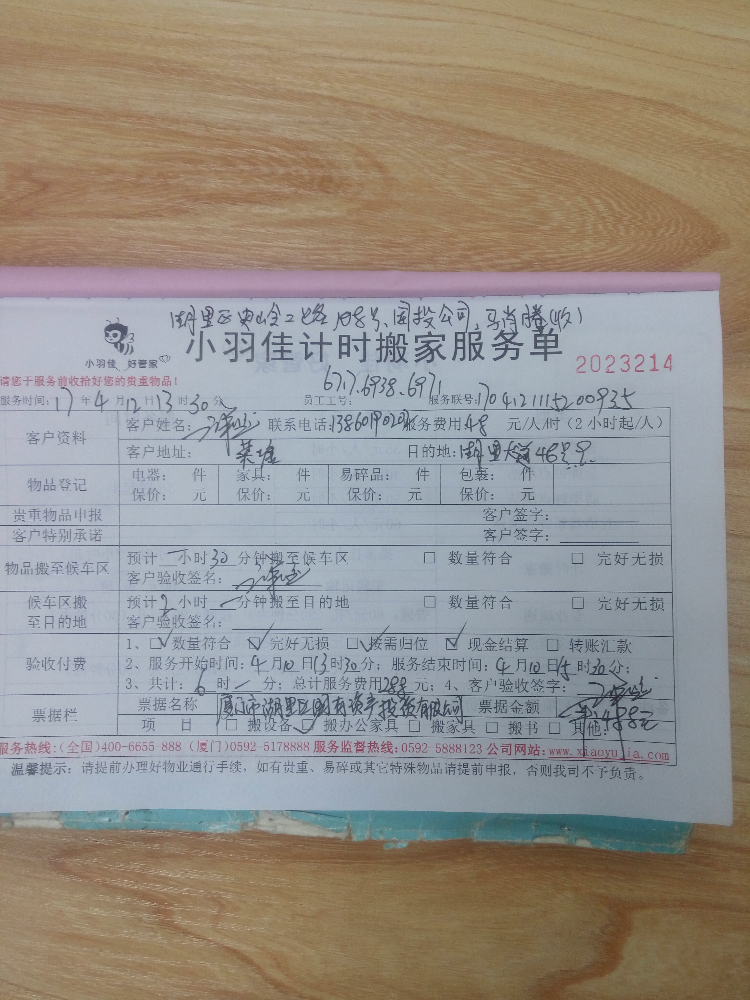 小羽佳 好管家
小羽佳计时搬家服务单
2023214
请您于服务前收拾好您的贵重物品！
6717.6938.6971
服务时间：17年4月12日13时30分 员工工号： 服务联号：
客户资料 客户姓名： 联系电话： 服务费用48元/人/时（2小时起/人）
客户地址： 目的地：湖里
物品登记 电器： 件 家具： 件 易碎品： 件 包裹： 件
保价： 元 保价： 元 保价： 元 保价： 元
贵重物品申报 客户签字：
客户特别承诺 客户签字：
物品搬至候车区 预计一小时30分钟搬至候车区 □ 数量符合 □ 完好无损
客户验收签名：
候车区搬至目的地 预计2小时一分钟搬至目的地 □ 数量符合 □ 完好无损
客户验收签名：
验收付费 1、☑数量符合 ☑完好无损 ☑按需归位 ☑现金结算 □ 转账汇款
2、服务开始时间：4月10日13时30分；服务结束时间：4月10日15时30分；
3、共计：6时一分；总计服务费用288元；4、客户验收签字：
票据栏 票据名称 厦门市湖里区国有资产投资有限公司 票据金额
项 目 □ 搬设备 □ 搬办公家具 □ 搬家具 □ 搬书 □ 其他：
服务热线：(全国)400-6655-888 (厦门)0592-5178888 服务监督热线：0592-5888123 公司网站：www.xiaoyujia.com
温馨提示：请提前办理好物业通行手续，如有贵重、易碎或其它特殊物品请提前申报，否则我司不予负责。